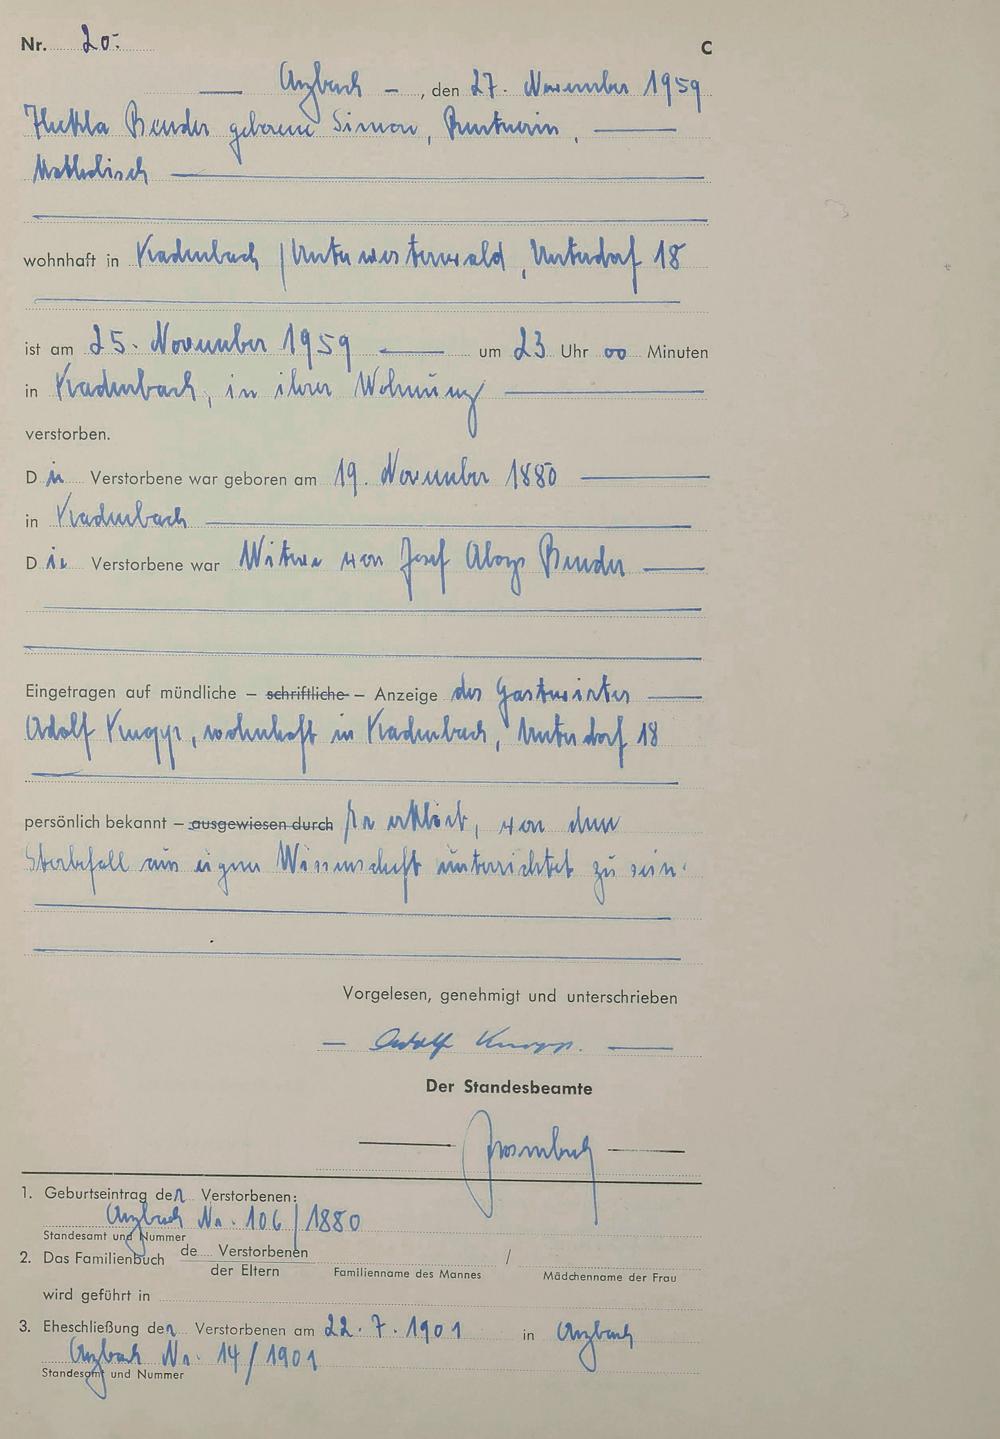 Nr. 20. C
Arzbach, den 27. November 1959
Thekla Bender geborene Simon, Rentnerin,
katholisch
wohnhaft in Kadenbach / Unterwesterwald, Unterdorf 18
ist am 25. November 1959 um 23 Uhr 00 Minuten
in Kadenbach, in ihrer Wohnung
verstorben.
Die Verstorbene war geboren am 19. November 1880
in Kadenbach
Die Verstorbene war Witwe von Josef Aloys Bender
Eingetragen auf mündliche – schriftliche – Anzeige des Gastwirtes
Adolf Knopp, wohnhaft in Kadenbach, Unterdorf 18
persönlich bekannt – ausgewiesen durch Er erklärt, von dem
Sterbefall aus eigner Wissenschaft unterrichtet zu sein.
Vorgelesen, genehmigt und unterschrieben
Adolf Knopp.
Der Standesbeamte
1. Geburtseintrag der Verstorbenen:
Arzbach Nr. 106/1880
Standesamt und Nummer
2. Das Familienbuch de Verstorbenen
der Eltern / Familienname des Mannes Mädchenname der Frau
wird geführt in
3. Eheschließung der Verstorbenen am 22.7.1901 in Arzbach
Arzbach Nr. 14/1901
Standesamt und Nummer